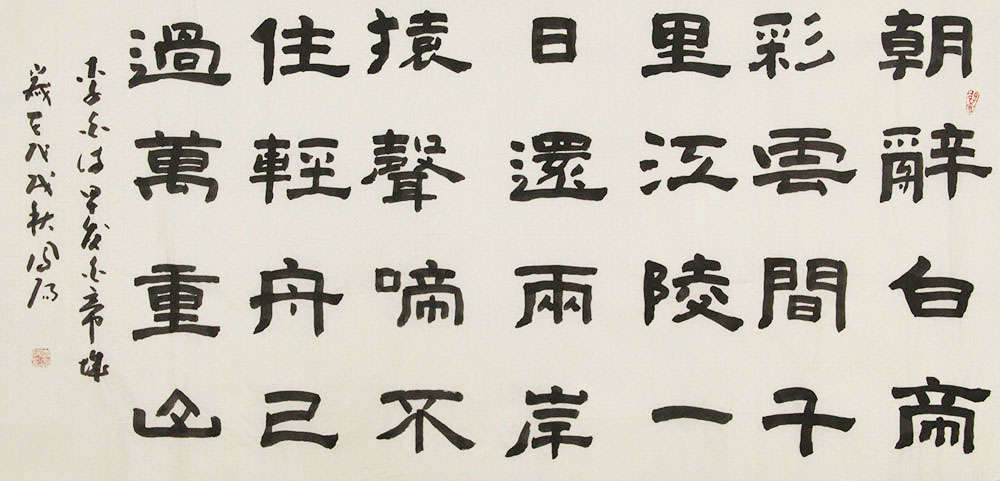 朝辭白帝
彩雲間千
里江陵一
日還兩岸
猿聲啼不
住輕舟已
過萬重山
李白诗早发白帝城
歲在戊戌秋